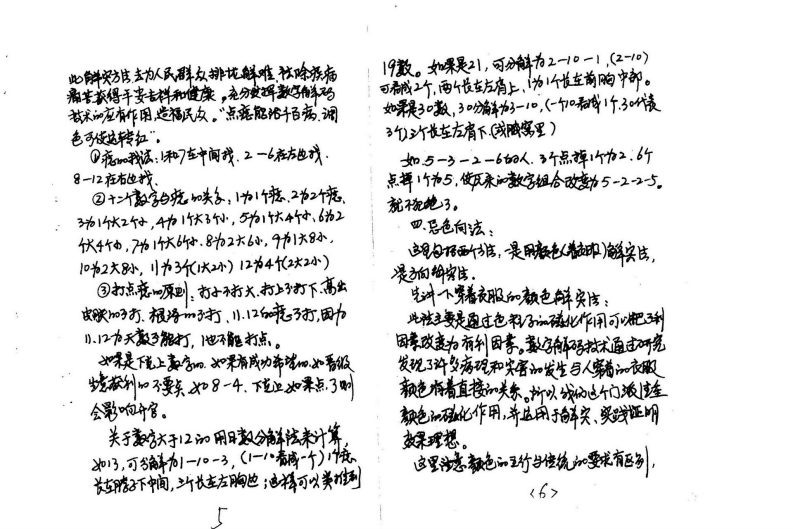 此解灾方法,去为人民群众排忧解难,祛除疾病
痛苦获得平安吉祥和健康。充分发挥数字解码
技术的应有作用,造福民众。"点痣能治千百病,调
色可使运转红"。
①痣的找法:1和7在中间找.2-6在左边找.
8-12在右边找.
②十二个数字与痣的关系:1为1个痣.2为2个痣.
3为1个大2个小,4为1个大3个小,5为1个大4个小,6为2
个大4个小,7为1个大6个小.8为2大6小,9为1大8小,
10为2大8小,11为3个(1大2小)12为4个(2大2小)
③打点痣的原则:打小不打大.打上不打下.高出
皮肤的不打.根深的不打.11.12的痣不打,因为
11.12为大数不能打,1也不能打点。
如果是下克上数字的.如果有成功希望的.如晋级
生意获利的不要点.如8-4.下克上如果点了则
会影响升官。
关于数字大于12的用日数分解法来计算,
如13,可分解为1-10-3,(1-10看成一个)1个痣
长在脖子下中间,三个长在左胸边;这样可以类推到
5
19数。如果是21,可分解为2-10-1,(2-10)
可看成2个,两个长在左肩上,1为1个长在前胸中部。
如果是30数,30分解为3-10,(一个10看成1个.30代表
3个)3个长在左肩下(或腋窝里)
如5-3-2-6的人.3个点掉1个为2.6个
点掉1个为5,使原来的数字组合改变为5-2-2-5。
就不犯绝了。
四.忌色向法:
这里包括两个方法,一是用颜色(着衣服)解灾法,
二是方向解灾法.
先讲一下穿着衣服的颜色解灾法:
此法主要是通过色粒子的磁化作用可以把不利
因素改变为有利因素。数字解码技术通过研究
发现了许多病现和灾害的发生与人穿着的衣服
颜色有着直接的关系。所以我们这个门派注重
颜色的磁化作用,并运用于解灾、实践证明
效果理想。
这里注意颜色的五行与传统的要求有区别,
<6>